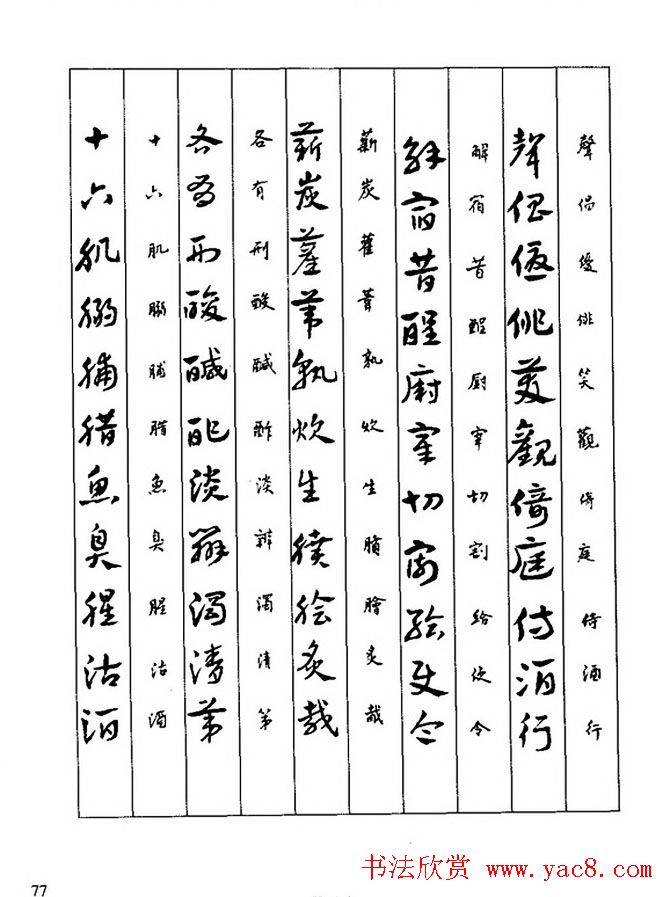 聲倡優俳笑觀倚庭侍酒行
聲倡優俳笑觀倚庭侍酒行
解宿昔醒厨宰切割給使令
解宿昔醒厨宰切割給使令
薪炭雚葦孰炊生膹膾炙哉
薪炭雚葦孰炊生膹膾炙哉
各有刑酸鹹酢淡辨濁清第
各有刑酸鹹酢淡辨濁清第
十六肌䐧脯腊魚臭腥沽酒
十六肌䐧脯腊魚臭腥沽酒
77
书法欣赏 www.yac8.com